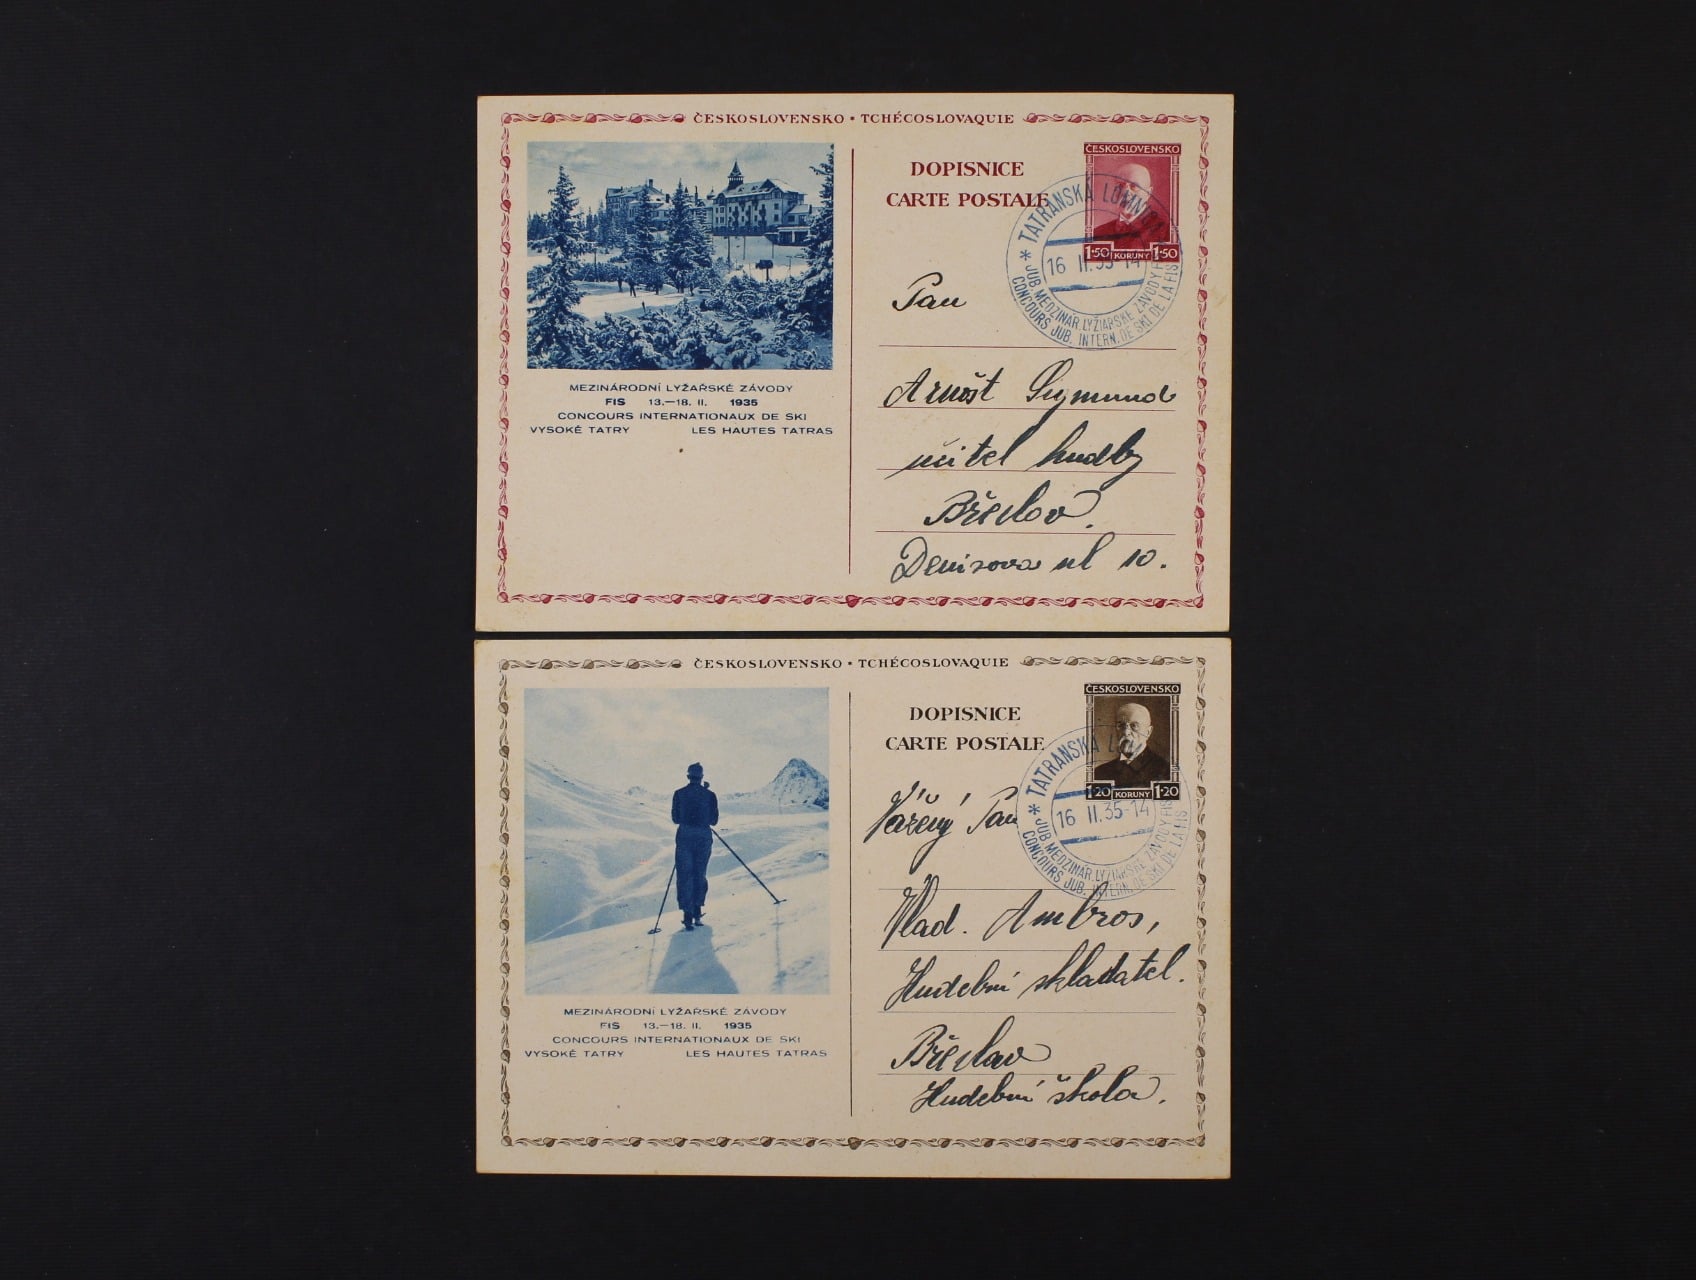 ČESKOSLOVENSKO • TCHÉCOSLOVAQUIE
DOPISNICE
CARTE POSTALE
ČESKOSLOVENSKO
1·50 KORUNY 1·50
TATRANSKÁ LOMNICA
16 II.35-14
* JUB. MEDZINÁR. LYŽIARSKÉ ZÁVODY FIS
CONCOURS JUB. INTERN. DE SKI DE LA FIS
MEZINÁRODNÍ LYŽAŘSKÉ ZÁVODY
FIS 13.—18. II. 1935
CONCOURS INTERNATIONAUX DE SKI
VYSOKÉ TATRY LES HAUTES TATRAS
Pan
Arnošt Sigmund
učitel hudby
Břeclav.
Denisova ul 10.
ČESKOSLOVENSKO • TCHÉCOSLOVAQUIE
DOPISNICE
CARTE POSTALE
ČESKOSLOVENSKO
1·20 KORUNY 1·20
TATRANSKÁ
16 II.35-14
* JUB MEDZINÁR. LYŽIARSKÉ ZÁVODY FIS
CONCOURS JUB. INTERN. DE SKI DE LA FIS
MEZINÁRODNÍ LYŽAŘSKÉ ZÁVODY
FIS 13.—18. II. 1935
CONCOURS INTERNATIONAUX DE SKI
VYSOKÉ TATRY LES HAUTES TATRAS
Vážený Pan
Vlad. Ambros,
Hudební skladatel.
Břeclav
Hudební škola.